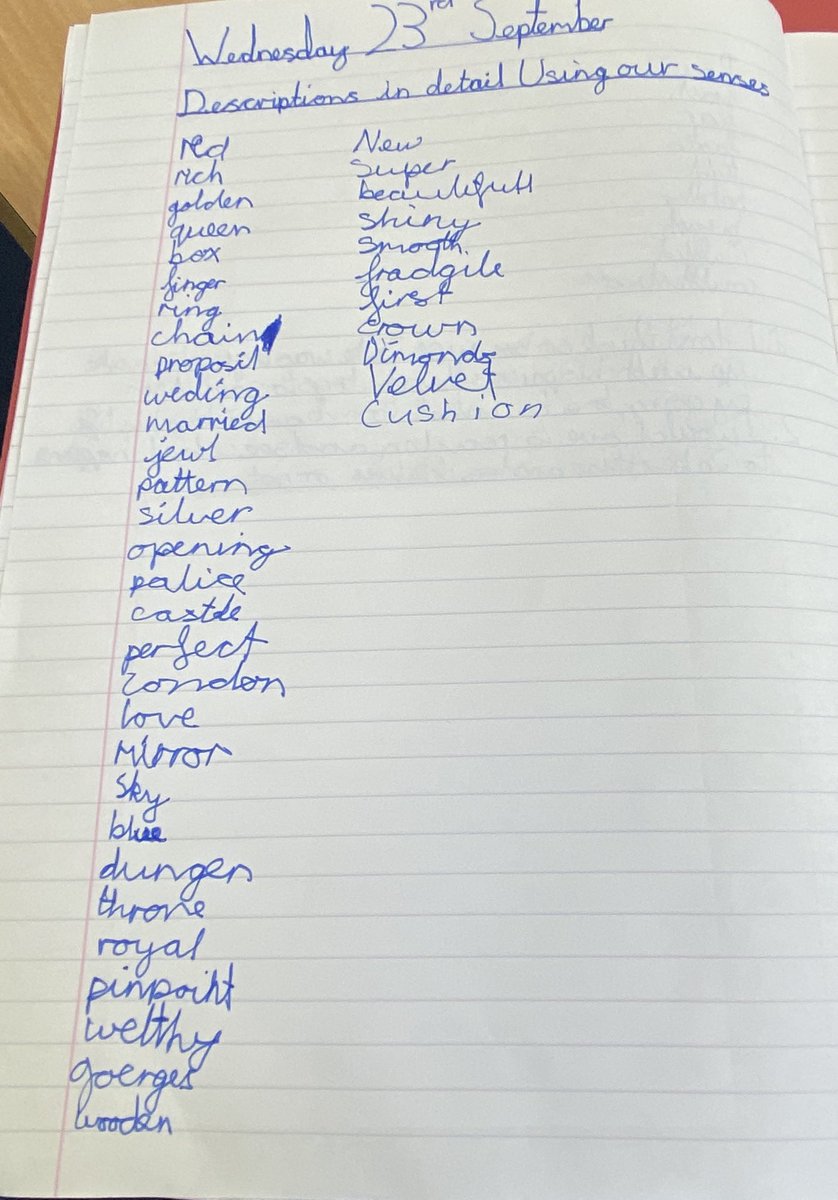 Wednesday 23rd September
Descriptions in detail Using our senses
red
rich
golden
queen
box
finger
ring
chain
proposil
weding
married
jewl
pattern
silver
opening
palice
castle
perfect
London
love
Mirror
Sky
blue
dungen
throne
royal
pinpoint
welthy
goerges
wooden
New
Super
beautifull
shiny
Smooth
fradgile
first
crown
Dimonds
Velvet
Cushion